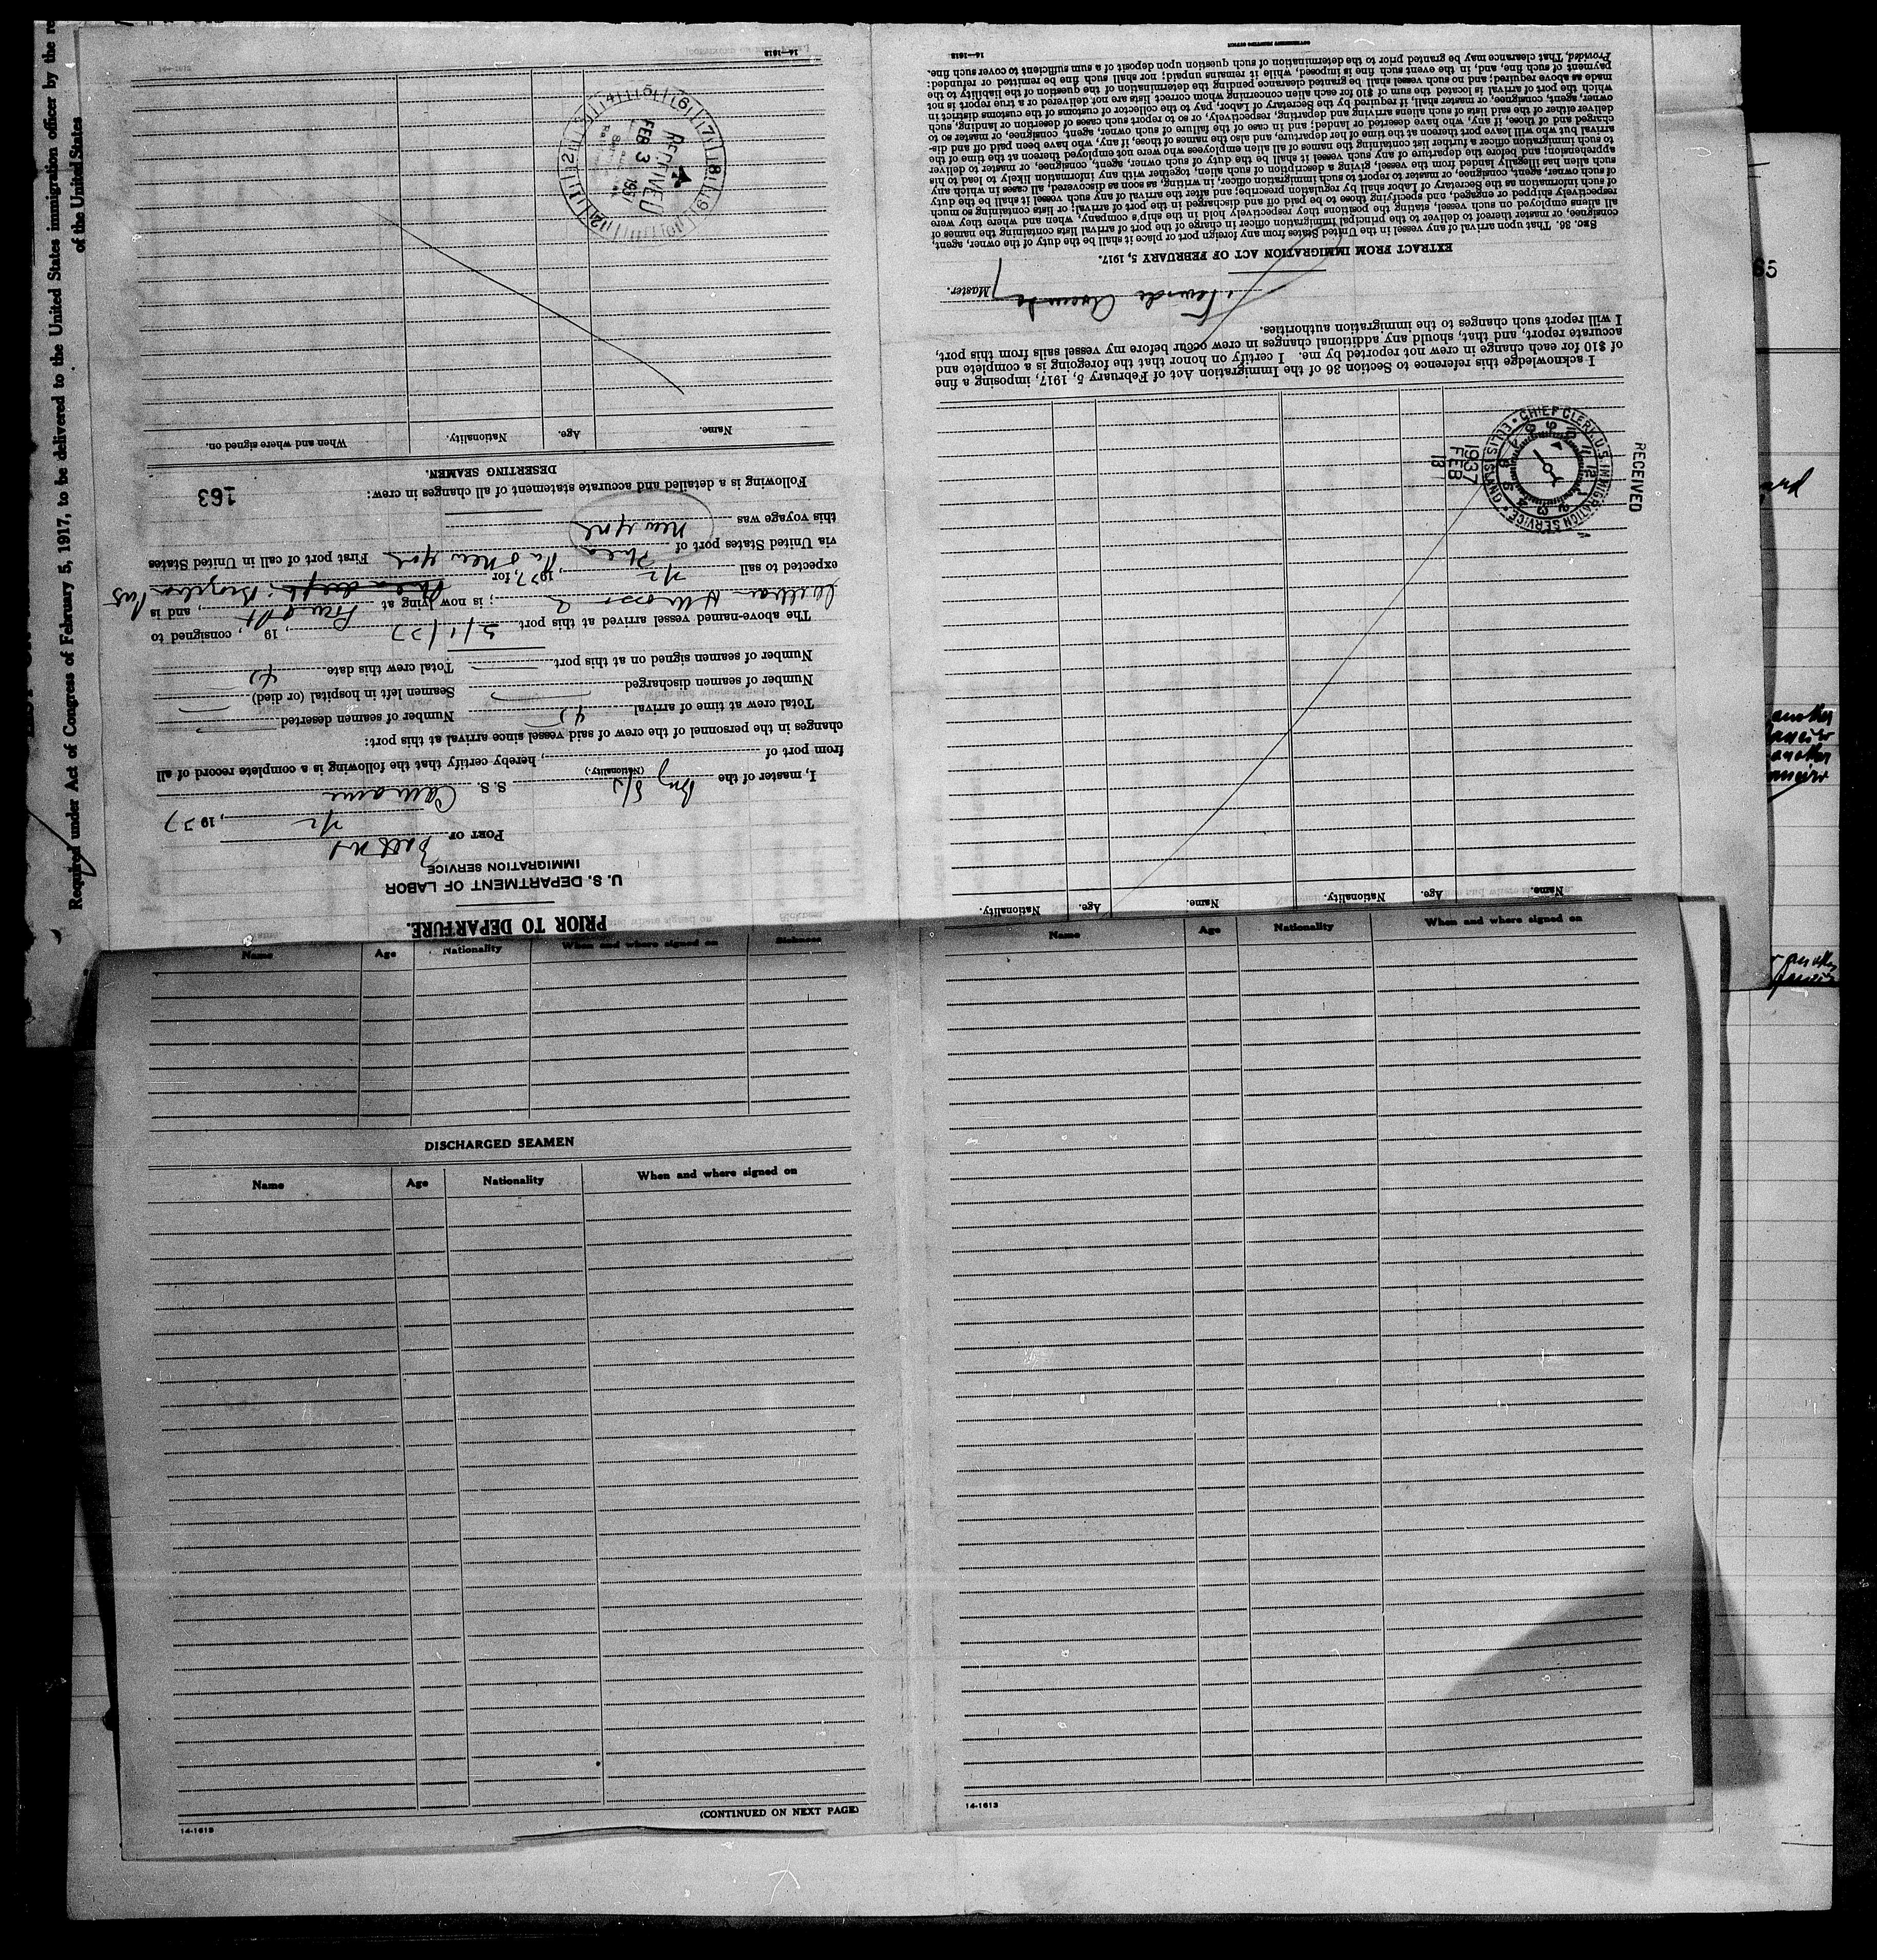 Required under Act of Congress of February 5, 1917, to be delivered to the United States immigration officer by the
of the United States
PRIOR TO DEPARTURE.
U. S. DEPARTMENT OF LABOR
IMMIGRATION SERVICE
PORT OF
, 1937
I, master of the S. S.
(Nationality.)
from port of , hereby certify that the following is a complete record of all
changes in the personnel of the crew of said vessel since arrival at this port:
Total crew at time of arrival Number of seamen deserted
Number of seamen discharged Seamen left in hospital (or died)
Number of seamen signed on at this port Total crew this date
The above-named vessel arrived at this port 2/1/37, 19 , consigned to
William ; is now lying at , and is
expected to sail , 1937, for New York First port of call in United States
via United States port of Phila
this voyage was New York
Following is a detailed and accurate statement of all changes in crew:
163
DESERTING SEAMEN.
Name. Age. Nationality. When and where signed on.
RECEIVED
FEB 3 1937
14—1613
Name. Age. Nationality. Name. Age. Nationality.
RECEIVED
1937 FEB
CHIEF CLERK, U.S. IMMIGRATION SERVICE ELLIS ISLAND
I acknowledge this reference to Section 36 of the Immigration Act of February 5, 1917, imposing a fine
of $10 for each change in crew not reported by me. I certify on honor that the foregoing is a complete and
accurate report, and that, should any additional changes in crew occur before my vessel sails from this port,
I will report such changes to the immigration authorities.
Master.
EXTRACT FROM IMMIGRATION ACT OF FEBRUARY 5, 1917.
SEC. 36. That upon arrival of any vessel in the United States from any foreign port or place it shall be the duty of the owner, agent,
consignee, or master thereof to deliver to the principal immigration officer in charge of the port of arrival lists containing the names of
all aliens employed on such vessel, stating the positions they respectively hold in the ship's company, when and where they were
respectively shipped or engaged, and specifying those to be paid off and discharged in the port of arrival; or lists containing so much
of such information as the Secretary of Labor shall by regulation prescribe; and after the arrival of any such vessel it shall be the duty
of such owner, agent, consignee, or master to report to such immigration officer, in writing, as soon as discovered, all cases in which any
such alien has illegally landed from the vessel, giving a description of such alien, together with any information likely to lead to his
apprehension; and before the departure of any such vessel it shall be the duty of such owner, agent, consignee, or master to deliver
to such immigration officer a further list containing the names of all alien employees who were not employed thereon at the time of the
arrival but who will leave port thereon at the time of her departure, and also the names of those, if any, who have been paid off and dis-
charged and of those, if any, who have deserted or landed; and in case of the failure of such owner, agent, consignee, or master so to
deliver either of the said lists of such aliens arriving and departing, respectively, or so to report such cases of desertion or landing, such
owner, agent, consignee, or master shall, if required by the Secretary of Labor, pay to the collector of customs of the customs district in
which the port of arrival is located the sum of $10 for each alien concerning whom correct lists are not delivered or a true report is not
made as above required; and no such vessel shall be granted clearance pending the determination of the question of the liability to the
payment of such fine, and, in the event such fine is imposed, while it remains unpaid; nor shall such fine be remitted or refunded:
Provided, That clearance may be granted prior to the determination of such question upon deposit of a sum sufficient to cover such fine.
14—1613
Name Age Nationality When and where signed on Sickness
DISCHARGED SEAMEN
Name Age Nationality When and where signed on
(CONTINUED ON NEXT PAGE)
14-1613
Name Age Nationality When and where signed on
14-1613
another
another